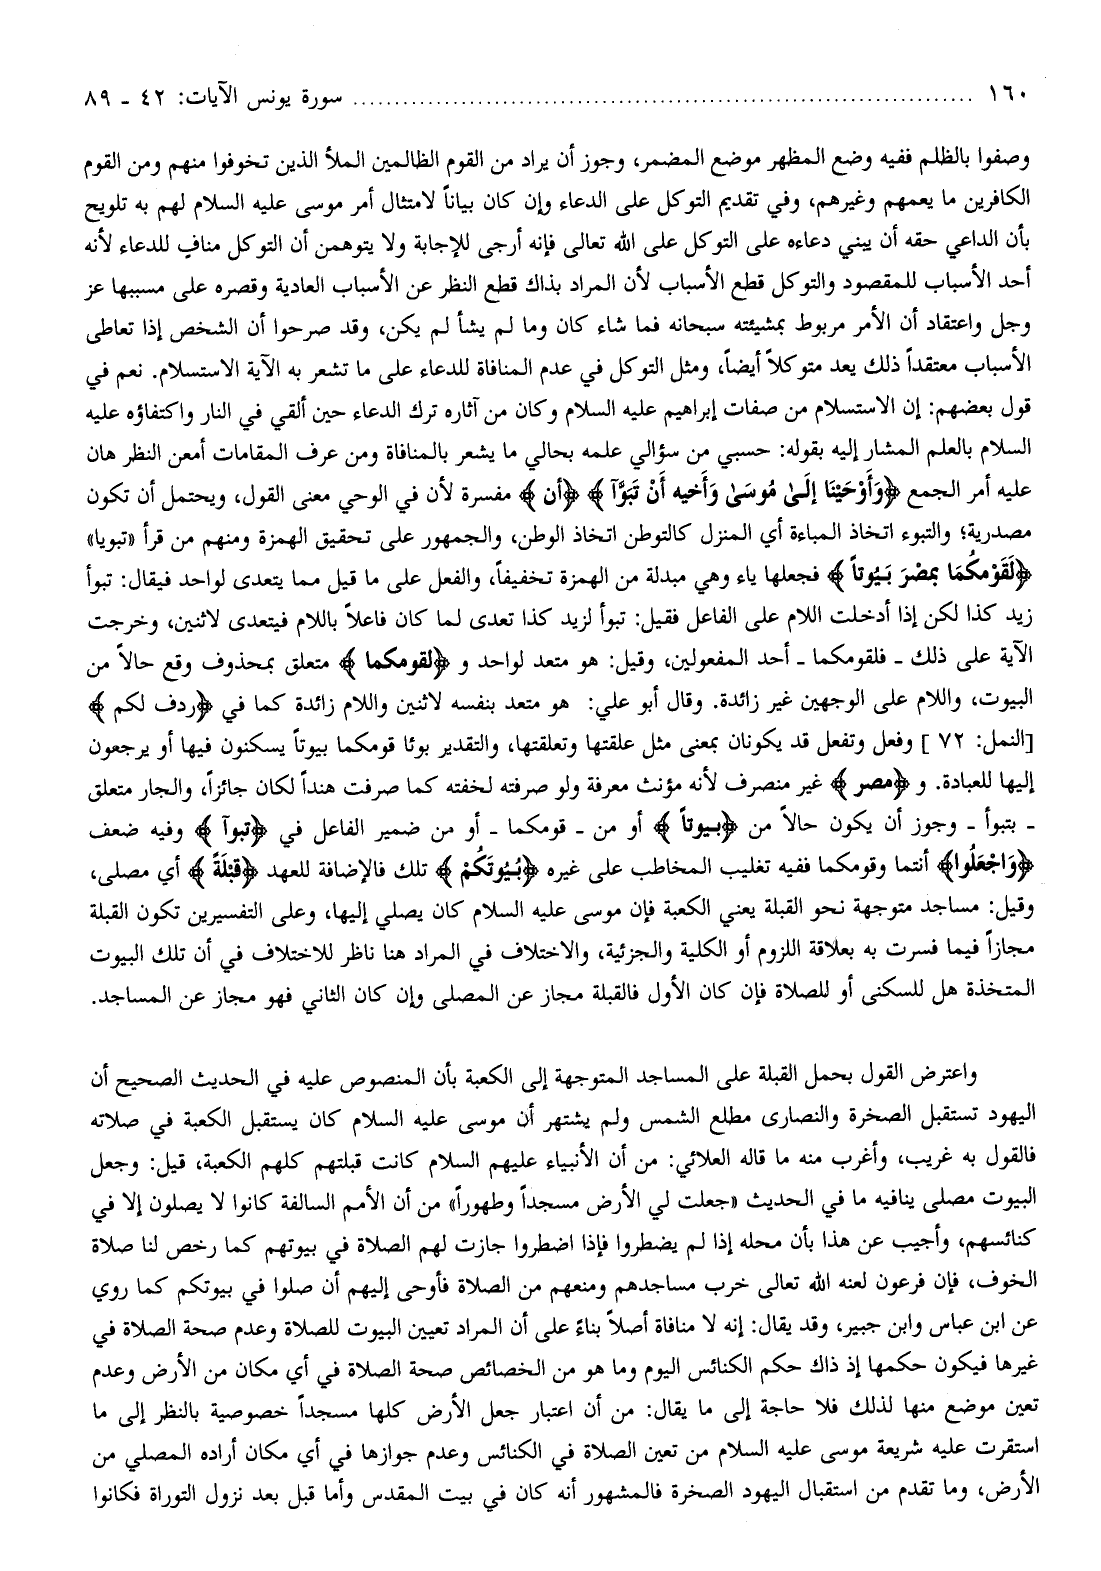 ١٦٠ ........................................................................ سورة يونس الآيات: ٤٢ ـ ٨٩
وصفوا بالظلم ففيه وضع المظهر موضع المضمر، وجوز أن يراد من القوم الظالمين الملأ الذين تخوفوا منهم ومن القوم
الكافرين ما يعمهم وغيرهم، وفي تقديم التوكل على الدعاء وإن كان بياناً لامتثال أمر موسى عليه السلام لهم به تلويح
بأن الداعي حقه أن يبني دعاءه على التوكل على الله تعالى فإنه أرجى للإجابة ولا يتوهمن أن التوكل مناف للدعاء لأنه
أحد الأسباب للمقصود والتوكل قطع الأسباب لأن المراد بذاك قطع النظر عن الأسباب العادية وقصره على مسببها عز
وجل واعتقاد أن الأمر مربوط بمشيئته سبحانه فما شاء كان وما لم يشأ لم يكن، وقد صرحوا أن الشخص إذا تعاطى
الأسباب معتقداً ذلك يعد متوكلاً أيضاً، ومثل التوكل في عدم المنافاة للدعاء على ما تشعر به الآية الاستسلام. نعم في
قول بعضهم: إن الاستسلام من صفات إبراهيم عليه السلام وكان من آثاره ترك الدعاء حين ألقي في النار واكتفاؤه عليه
السلام بالعلم المشار إليه بقوله: حسبي من سؤالي علمه بحالي ما يشعر بالمنافاة ومن عرف المقامات أمعن النظر هان
عليه أمر الجمع ﴿وَأَوْحَيْنَا إِلَىٰ مُوسَىٰ وَأَخيه أَنْ تَبَوَّآ﴾ ﴿أن﴾ مفسرة لأن في الوحي معنى القول، ويحتمل أن تكون
مصدرية؛ والتبوء اتخاذ المباءة أي المنزل كالتوطن اتخاذ الوطن، والجمهور على تحقيق الهمزة ومنهم من قرأ «تبويا»
﴿لَقَوْمكُمَا بمصْرَ بَيُوتاً﴾ فجعلها ياء وهي مبدلة من الهمزة تخفيفاً، والفعل على ما قيل مما يتعدى لواحد فيقال: تبوأ
زيد كذا لكن إذا أدخلت اللام على الفاعل فقيل: تبوأ لزيد كذا تعدى لما كان فاعلاً باللام فيتعدى لاثنين، وخرجت
الآية على ذلك ـ فلقومكما ـ أحد المفعولين، وقيل: هو متعد لواحد و ﴿لقومكما﴾ متعلق بمحذوف وقع حالاً من
البيوت، واللام على الوجهين غير زائدة. وقال أبو علي: هو متعد بنفسه لاثنين واللام زائدة كما في ﴿ردف لكم﴾
[النمل: ٧٢ ] وفعل وتفعل قد يكونان بمعنى مثل علقتها وتعلقتها، والتقدير بوئا قومكما بيوتاً يسكنون فيها أو يرجعون
إليها للعبادة. و ﴿مصر﴾ غير منصرف لأنه مؤنث معرفة ولو صرفته لخفته كما صرفت هنداً لكان جائزاً، والجار متعلق
ـ بتبوأ ـ وجوز أن يكون حالاً من ﴿بيوتاً﴾ أو من ـ قومكما ـ أو من ضمير الفاعل في ﴿تبوآ﴾ وفيه ضعف
﴿وَاجْعَلُوا﴾ أنتما وقومكما ففيه تغليب المخاطب على غيره ﴿بُيُوتَكُمْ﴾ تلك فالإضافة للعهد ﴿قبْلَةً﴾ أي مصلى،
وقيل: مساجد متوجهة نحو القبلة يعني الكعبة فإن موسى عليه السلام كان يصلي إليها، وعلى التفسيرين تكون القبلة
مجازاً فيما فسرت به بعلاقة اللزوم أو الكلية والجزئية، والاختلاف في المراد هنا ناظر للاختلاف في أن تلك البيوت
المتخذة هل للسكنى أو للصلاة فإن كان الأول فالقبلة مجاز عن المصلى وإن كان الثاني فهو مجاز عن المساجد.
واعترض القول بحمل القبلة على المساجد المتوجهة إلى الكعبة بأن المنصوص عليه في الحديث الصحيح أن
اليهود تستقبل الصخرة والنصارى مطلع الشمس ولم يشتهر أن موسى عليه السلام كان يستقبل الكعبة في صلاته
فالقول به غريب، وأغرب منه ما قاله العلائي: من أن الأنبياء عليهم السلام كانت قبلتهم كلهم الكعبة، قيل: وجعل
البيوت مصلى ينافيه ما في الحديث «جعلت لي الأرض مسجداً وطهوراً» من أن الأمم السالفة كانوا لا يصلون إلا في
كنائسهم، وأجيب عن هذا بأن محله إذا لم يضطروا فإذا اضطروا جازت لهم الصلاة في بيوتهم كما رخص لنا صلاة
الخوف، فإن فرعون لعنه الله تعالى خرب مساجدهم ومنعهم من الصلاة فأوحى إليهم أن صلوا في بيوتكم كما روي
عن ابن عباس وابن جبير، وقد يقال: إنه لا منافاة أصلاً بناءً على أن المراد تعيين البيوت للصلاة وعدم صحة الصلاة في
غيرها فيكون حكمها إذ ذاك حكم الكنائس اليوم وما هو من الخصائص صحة الصلاة في أي مكان من الأرض وعدم
تعين موضع منها لذلك فلا حاجة إلى ما يقال: من أن اعتبار جعل الأرض كلها مسجداً خصوصية بالنظر إلى ما
استقرت عليه شريعة موسى عليه السلام من تعين الصلاة في الكنائس وعدم جوازها في أي مكان أراده المصلي من
الأرض، وما تقدم من استقبال اليهود الصخرة فالمشهور أنه كان في بيت المقدس وأما قبل بعد نزول التوراة فكانوا